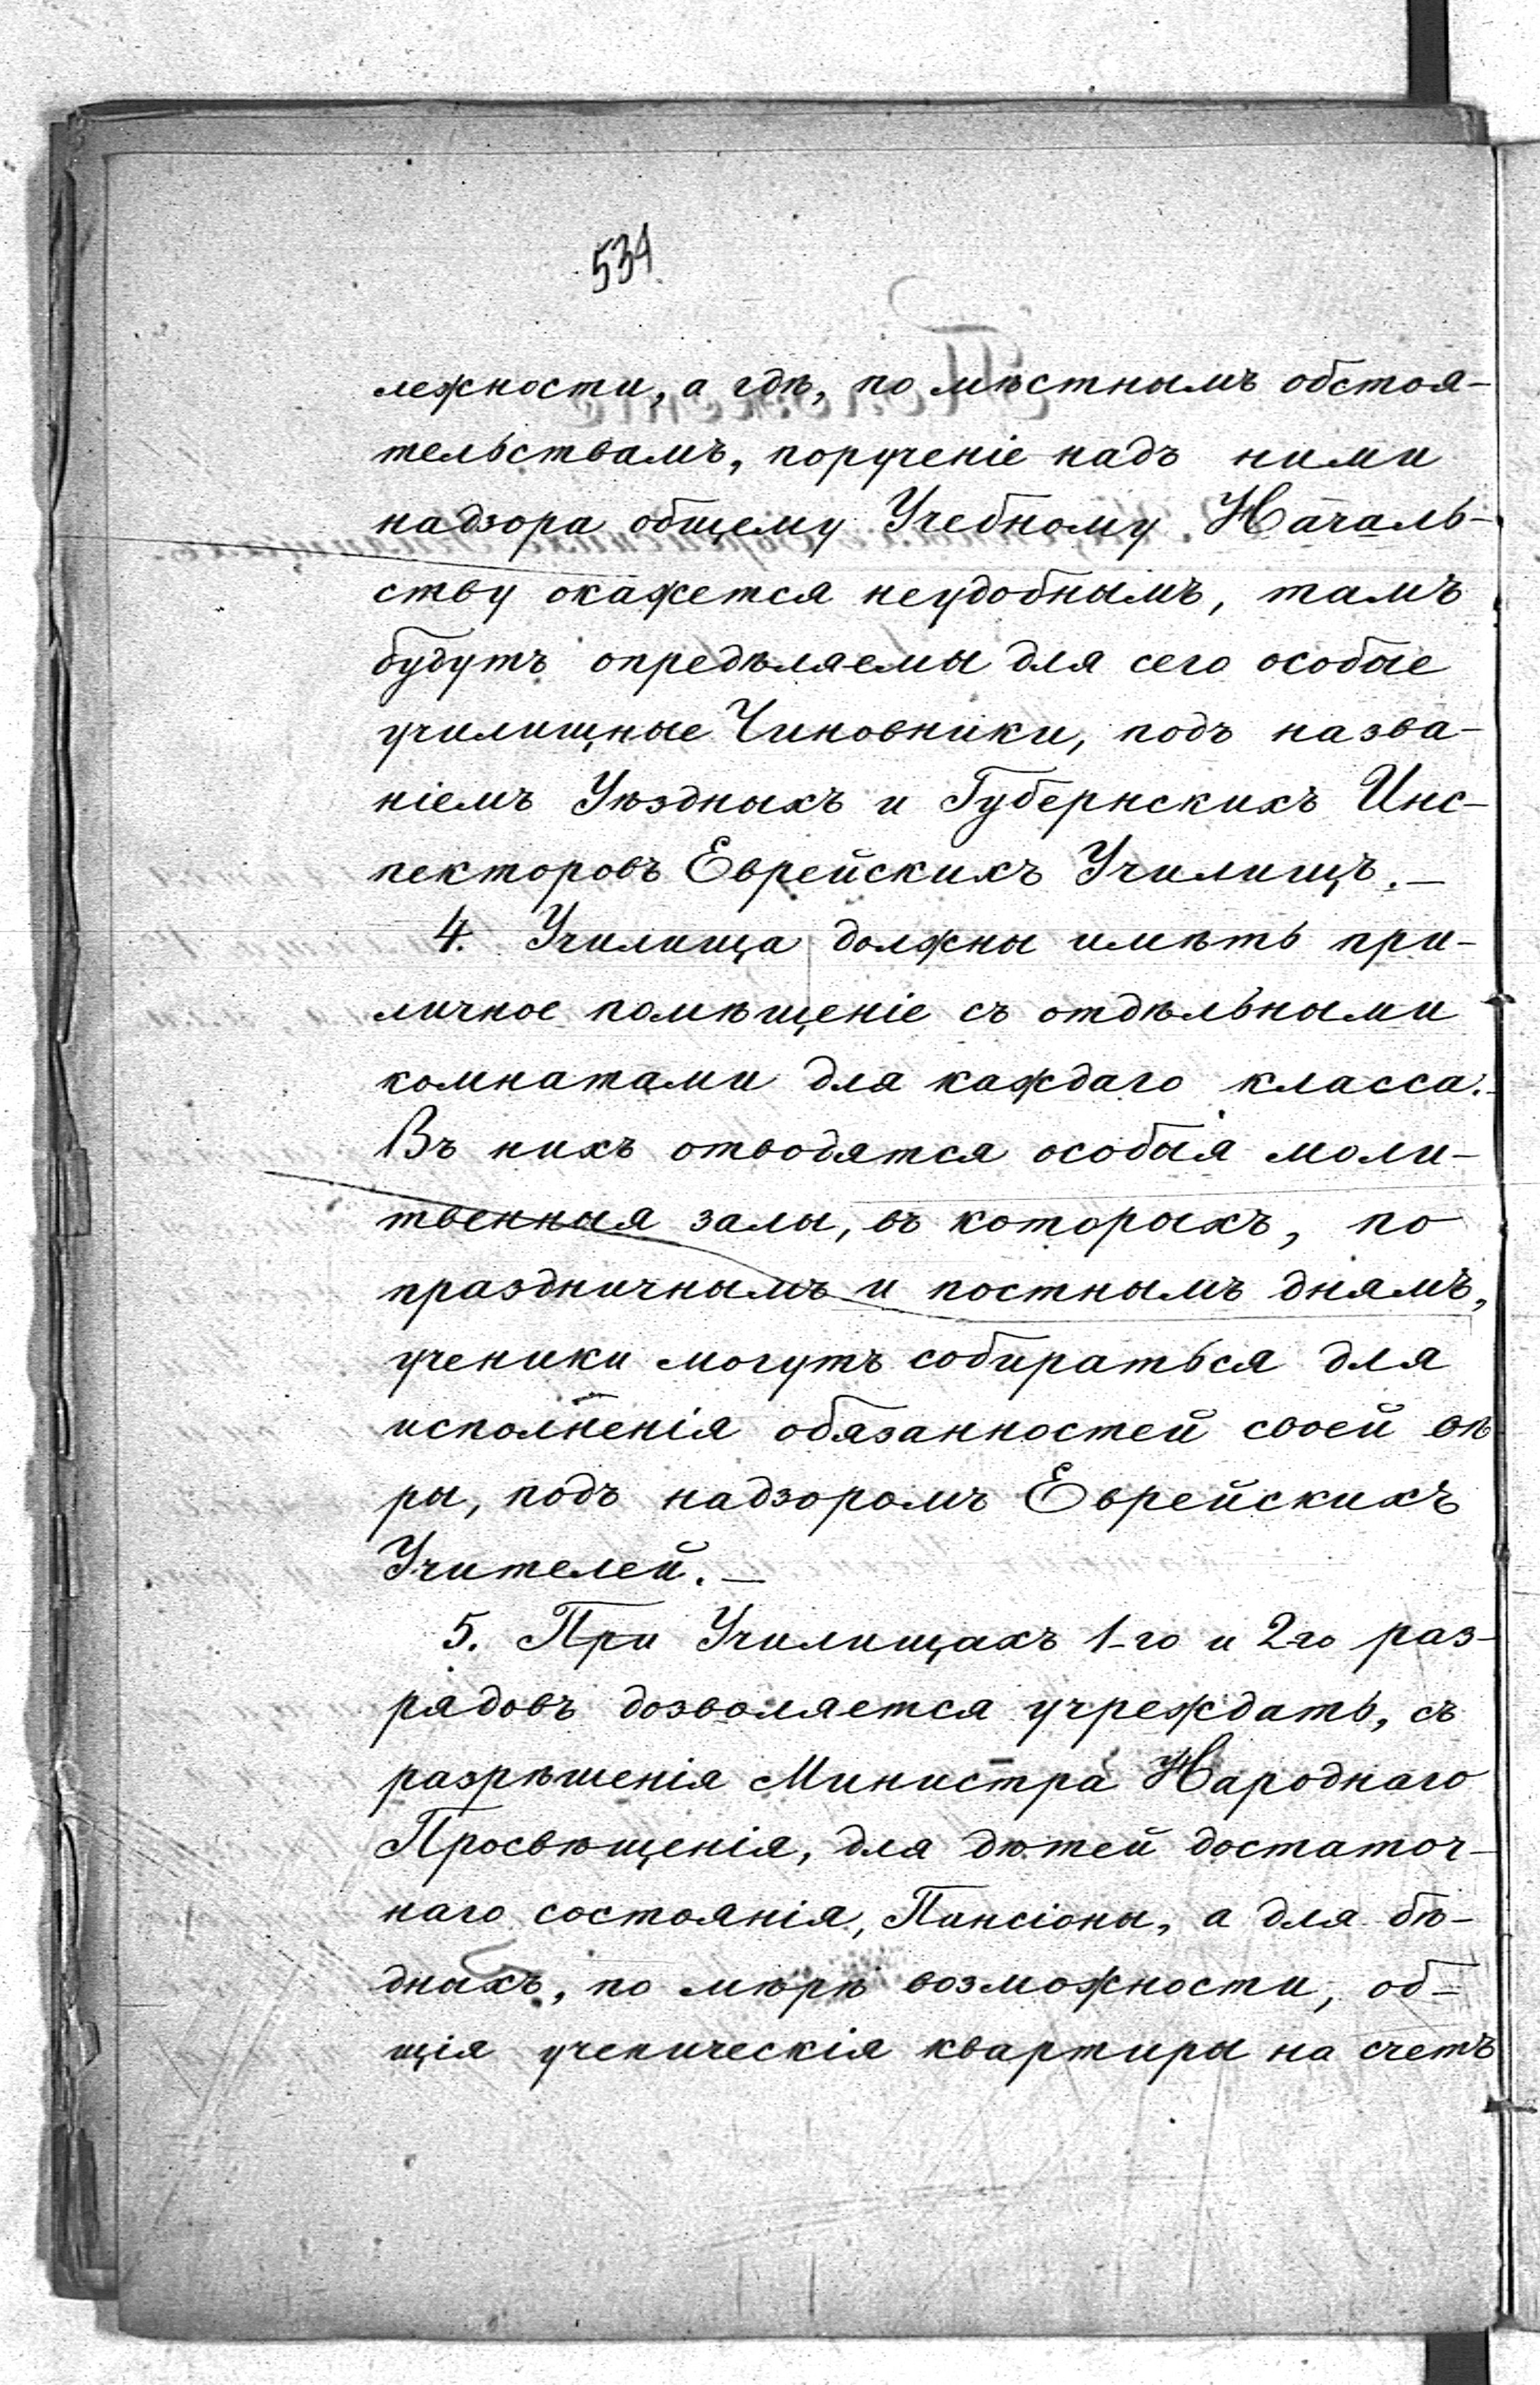 534
лежности, а гдѣ, по мѣстнымъ обстоя-
тельствамъ, порученіе надъ ними
надзора общему Учебному Началь-
ству окажется неудобнымъ, тамъ
будутъ опредѣляемы для сего особые
училищные Чиновники, подъ назва-
ніемъ Уѣздныхъ и Губернскихъ Инс-
пекторовъ Еврейскихъ Училищъ.—
4. Училища должны имѣть при-
личное помѣщеніе съ отдѣльными
комнатами для каждаго класса.
Въ нихъ отводятся особыя моли-
твенныя залы, въ которыхъ, по
праздничнымъ и постнымъ днямъ,
ученики могутъ собираться для
исполненія обязанностей своей вѣ-
ры, подъ надзоромъ Еврейскихъ
Учителей.—
5. При Училищахъ 1-го и 2-го раз-
рядовъ дозволяется учреждать, съ
разрѣшенія Министра Народнаго
Просвѣщенія, для дѣтей достаточ-
наго состоянія, Пансіоны, а для бѣ-
дныхъ, по мѣрѣ возможности, об-
щія ученическія квартиры на счетъ